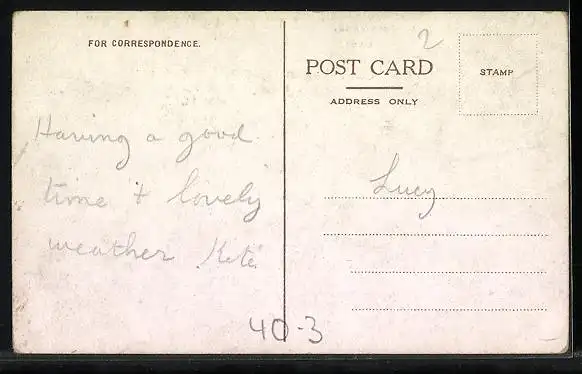 FOR CORRESPONDENCE.
Having a good
time & lovely
weather Kate
2
POST CARD
ADDRESS ONLY
STAMP
Lucy
40-3